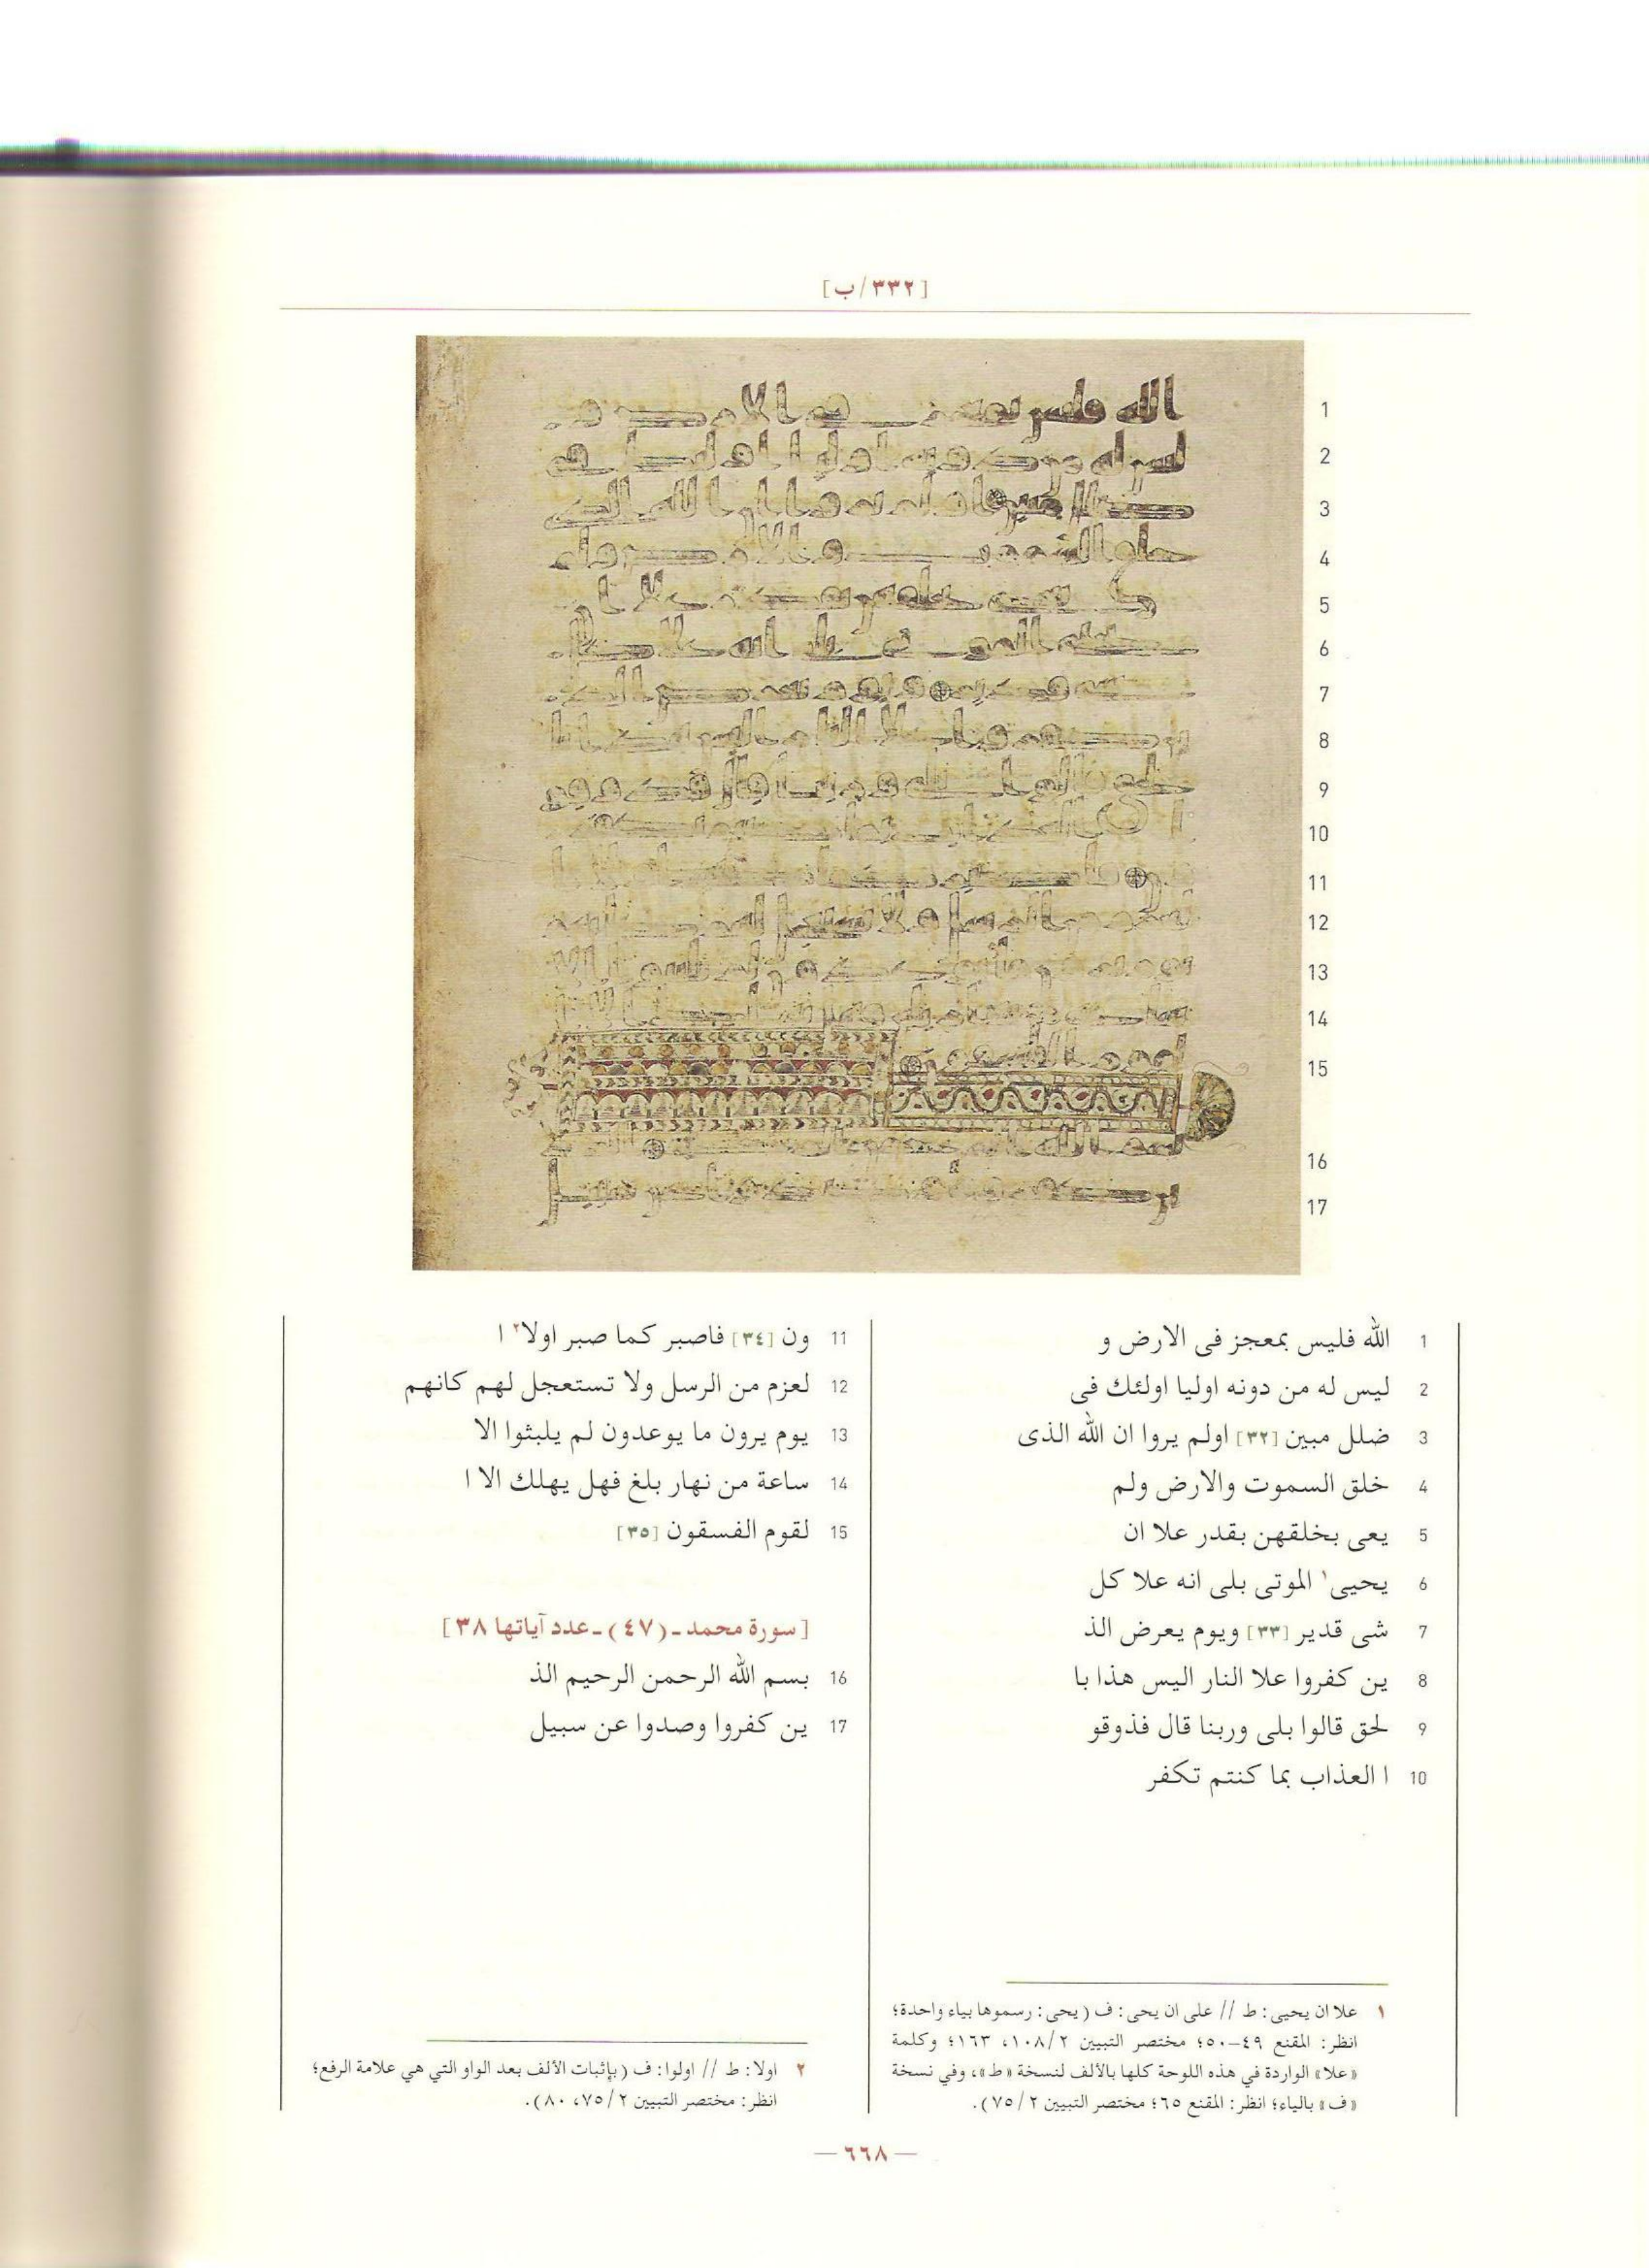 [٣٣٢/ب]
1 الله فليس بمعجز فى الارض و
2 ليس له من دونه اوليا اولئك فى
3 ضلل مبين [٣٢] اولم يروا ان الله الذى
4 خلق السموت والارض ولم
5 يعى بخلقهن بقدر علا ان
6 يحيى١ الموتى بلى انه علا كل
7 شى قدير [٣٣] ويوم يعرض الذ
8 ين كفروا علا النار اليس هذا با
9 لحق قالوا بلى وربنا قال فذوقو
10 ا العذاب بما كنتم تكفر
11 ون [٣٤] فاصبر كما صبر اولا٢ ا
12 لعزم من الرسل ولا تستعجل لهم كانهم
13 يوم يرون ما يوعدون لم يلبثوا الا
14 ساعة من نهار بلغ فهل يهلك الا ا
15 لقوم الفسقون [٣٥]
[سورة محمد ـ (٤٧) ـ عدد آياتها ٣٨]
16 بسم الله الرحمن الرحيم الذ
17 ين كفروا وصدوا عن سبيل
١ علا ان يحيى: ط // على ان يحى: ف (يحى: رسموها بياء واحدة؛
انظر: المقنع ٤٩-٥٠؛ مختصر التبيين ١٠٨/٢، ١٦٣؛ وكلمة
«علا» الواردة في هذه اللوحة كلها بالألف لنسخة «ط»، وفي نسخة
«ف» بالياء؛ انظر: المقنع ٦٥؛ مختصر التبيين ٧٥/٢).
٢ اولا: ط // اولوا: ف (بإثبات الألف بعد الواو التي هي علامة الرفع؛
انظر: مختصر التبيين ٧٥/٢، ٨٠).
— ٦٦٨ —